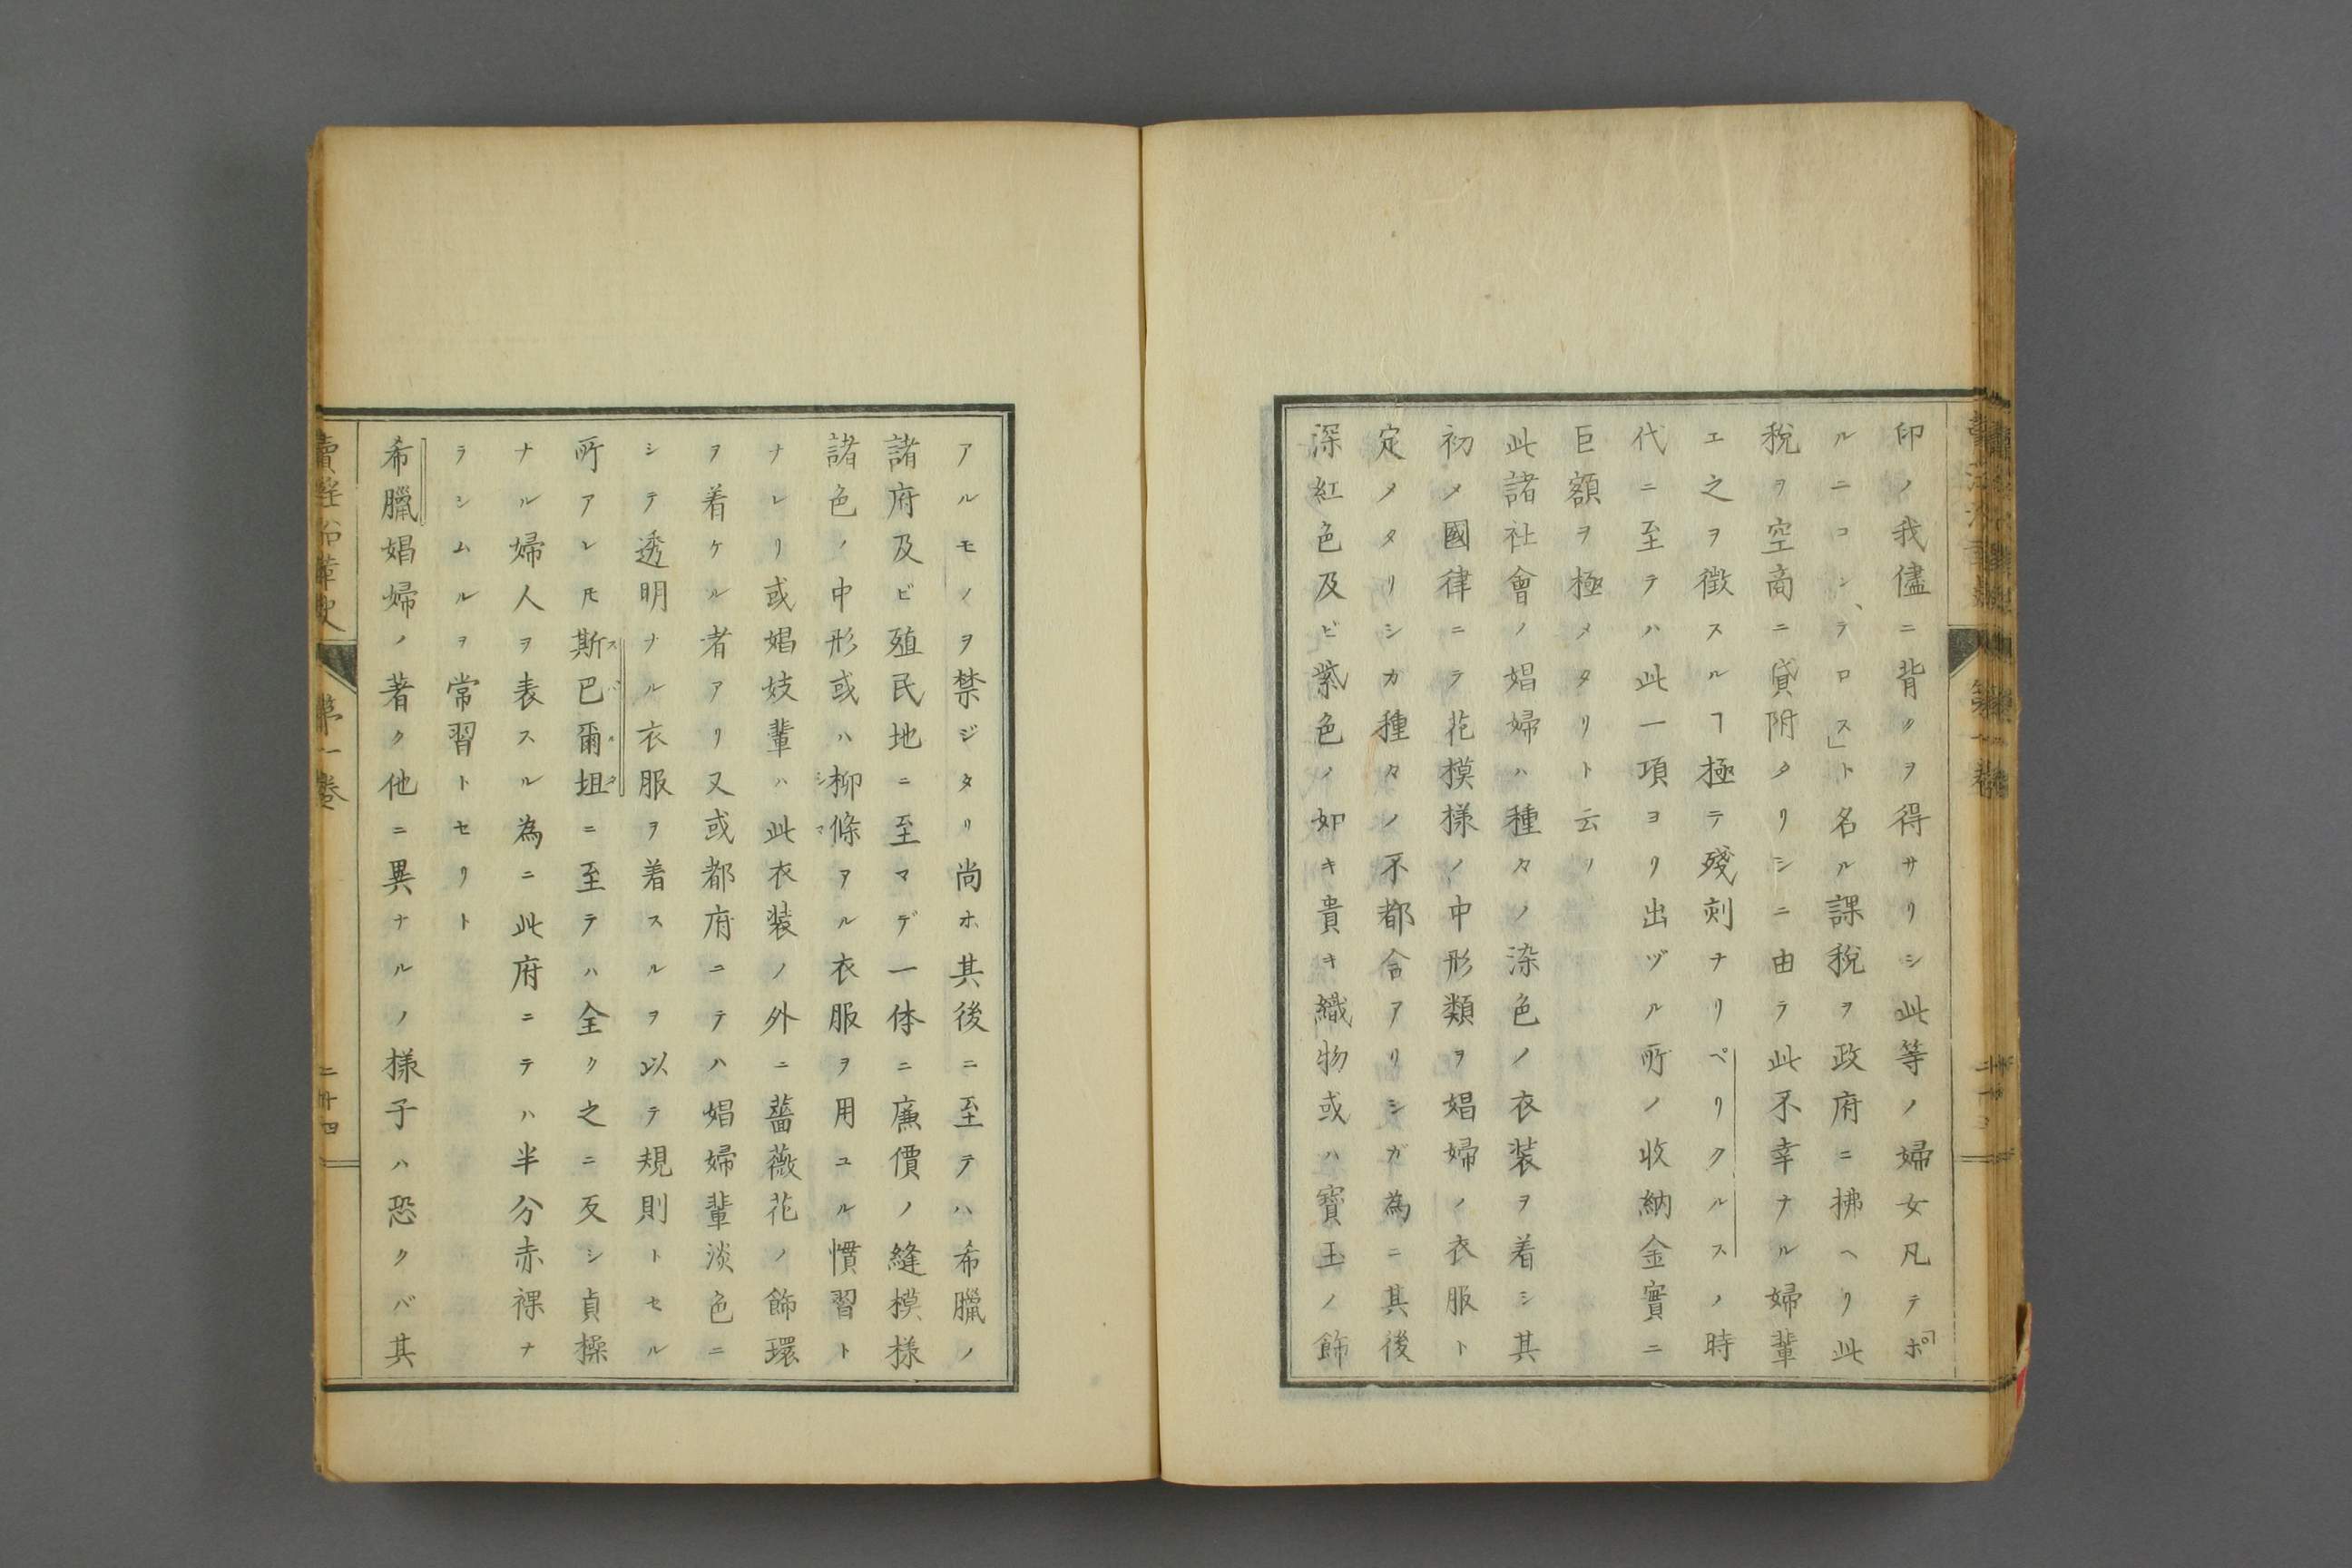 印ノ我儘ニ背クヲ得サリシ此等ノ婦女凡テ「ポ
ルニコン、テロス」ト名ル課税ヲ政府ニ拂ヘリ此
税ヲ空商ニ貸附タリシニ由テ此不幸ナル婦輩
エ之ヲ徴スルヿ極テ殘刻ナリペリクルスノ時
代ニ至テハ此一項ヨリ出ヅル所ノ收納金實ニ
巨額ヲ極メタリト云ノ
此諸社會ノ娼婦ハ種々ノ染色ノ衣装ヲ着シ其
初メ國律ニテ花模様ノ中形類ヲ娼婦ノ衣服ト
定メタリシカ種々ノ不都合アリシガ為ニ其後
深紅色及ビ紫色ノ如キ貴キ織物或ハ寶玉ノ飾
アルモノヲ禁ジタリ尚ホ其後ニ至テハ希臘ノ
諸府及ビ殖民地ニ至マデ一体ニ廉價ノ縫模様
諸色ノ中形或ハ柳條アル衣服ヲ用ユル慣習ト
シマ
ナレリ或娼妓輩ハ此衣装ノ外ニ薔薇花ノ飾環
ヲ着ケル者アリ又或都府ニテハ娼婦輩淡色ニ
シテ透明ナル衣服ヲ着スルヲ以テ規則トセル
所アレ𪜈斯巴爾坦ニ至テハ全ク之ニ反シ貞操
スパルタ
ナル婦人ヲ表スル為ニ此府ニテハ半分赤裸ナ
ラシムルヲ常習トセリト
希臘娼婦ノ著ク他ニ異ナルノ様子ハ恐クバ其
第一巻
二十四